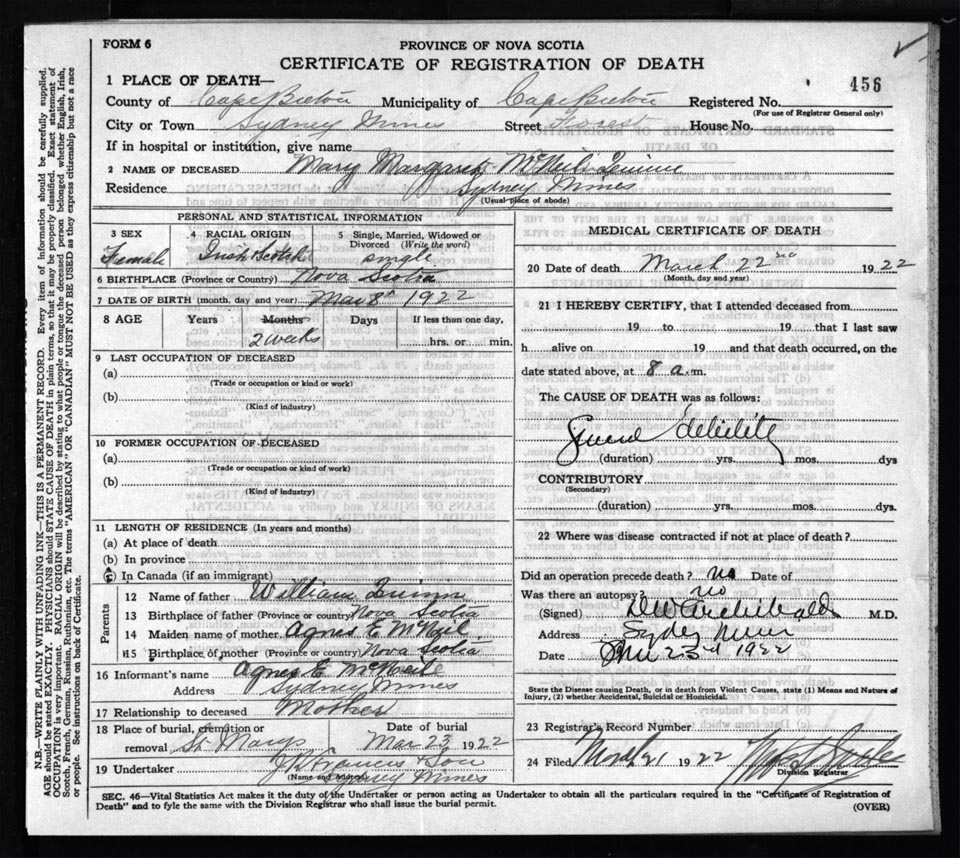 FORM 6
PROVINCE OF NOVA SCOTIA
CERTIFICATE OF REGISTRATION OF DEATH
456
1 PLACE OF DEATH—
County of Cape Breton Municipality of Cape Breton Registered No.
(For use of Registrar General only)
City or Town Sydney Mines Street Forest House No.
If in hospital or institution, give name
2 NAME OF DECEASED Mary Margaret McNeil Quinn
Residence Sydney Mines
(Usual place of abode)
PERSONAL AND STATISTICAL INFORMATION
3 SEX 4 RACIAL ORIGIN 5 Single, Married, Widowed or Divorced (Write the word)
Female Irish Scotch single
6 BIRTHPLACE (Province or Country) Nova Scotia
7 DATE OF BIRTH (month, day and year) Mar 8th 1922
8 AGE Years Months Days If less than one day,
2 weeks hrs. or min.
9 LAST OCCUPATION OF DECEASED
(a)
(Trade or occupation or kind or work)
(b)
(Kind of industry)
10 FORMER OCCUPATION OF DECEASED
(a)
(Trade or occupation or kind of work)
(b)
(Kind of industry)
11 LENGTH OF RESIDENCE (In years and months)
(a) At place of death
(b) In province
(c) In Canada (if an immigrant)
Parents
12 Name of father William Quinn
13 Birthplace of father (Province or country) Nova Scotia
14 Maiden name of mother Agnes E McNeil
15 Birthplace of mother (Province or country) Nova Scotia
16 Informant's name Agnes E McNeil
Address Sydney Mines
17 Relationship to deceased Mother
18 Place of burial, cremation or removal St. Marys Date of burial Mar 23 1922
19 Undertaker Francis & Son
(Name and Address) Sydney Mines
MEDICAL CERTIFICATE OF DEATH
20 Date of death March 22nd 1922
(Month, day and year)
21 I HEREBY CERTIFY, that I attended deceased from
19 to 19 that I last saw
h alive on 19 and that death occurred, on the
date stated above, at 8 a.m.
The CAUSE OF DEATH was as follows:
General debility
(duration) yrs. mos. dys
CONTRIBUTORY
(Secondary)
(duration) yrs. mos. dys.
22 Where was disease contracted if not at place of death?
Did an operation precede death? no Date of
Was there an autopsy? no
(Signed) Archibald M.D.
Address Sydney Mines
Date Mar 23rd 1922
State the Disease causing Death, or in death from Violent Causes, state (1) Means and Nature of Injury, (2) whether Accidental, Suicidal or Homicidal.
23 Registrar's Record Number
24 Filed March 21 1922
Division Registrar
SEC. 46—Vital Statistics Act makes it the duty of the Undertaker or person acting as Undertaker to obtain all the particulars required in the "Certificate of Registration of
Death" and to fyle the same with the Division Registrar who shall issue the burial permit.
(OVER)
N.B.—WRITE PLAINLY WITH UNFADING INK—THIS IS A PERMANENT RECORD. Every item of information should be carefully supplied.
AGE should be stated EXACTLY. PHYSICIANS should STATE CAUSE OF DEATH in plain terms, so that it may be properly classified. Exact statement of
OCCUPATION is very important. RACIAL ORIGIN will be described by stating to what people or tongue the deceased person belonged whether English, Irish,
Scotch, French, German, Russian, Ruthenian, etc. The terms "AMERICAN" OR "CANADIAN" MUST NOT BE USED as they express citizenship but not a race
or people. See instructions on back of Certificate.